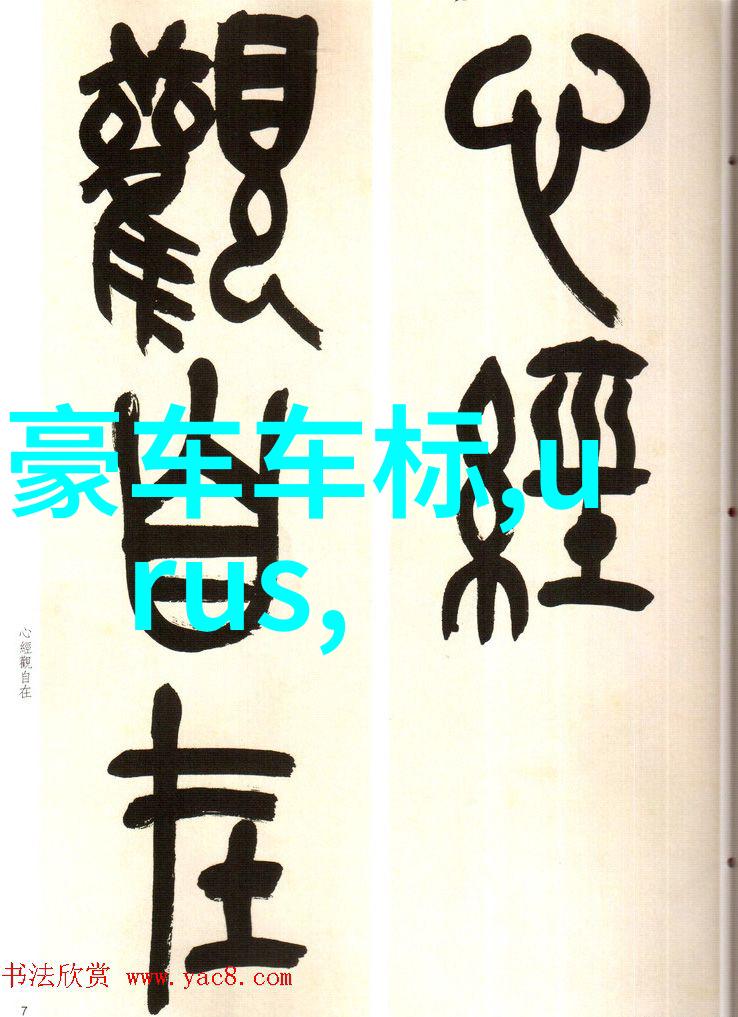 心經
觀自在
豪车车标,u
rus,
心經觀自在
书法欣赏 www.yac8.com
7